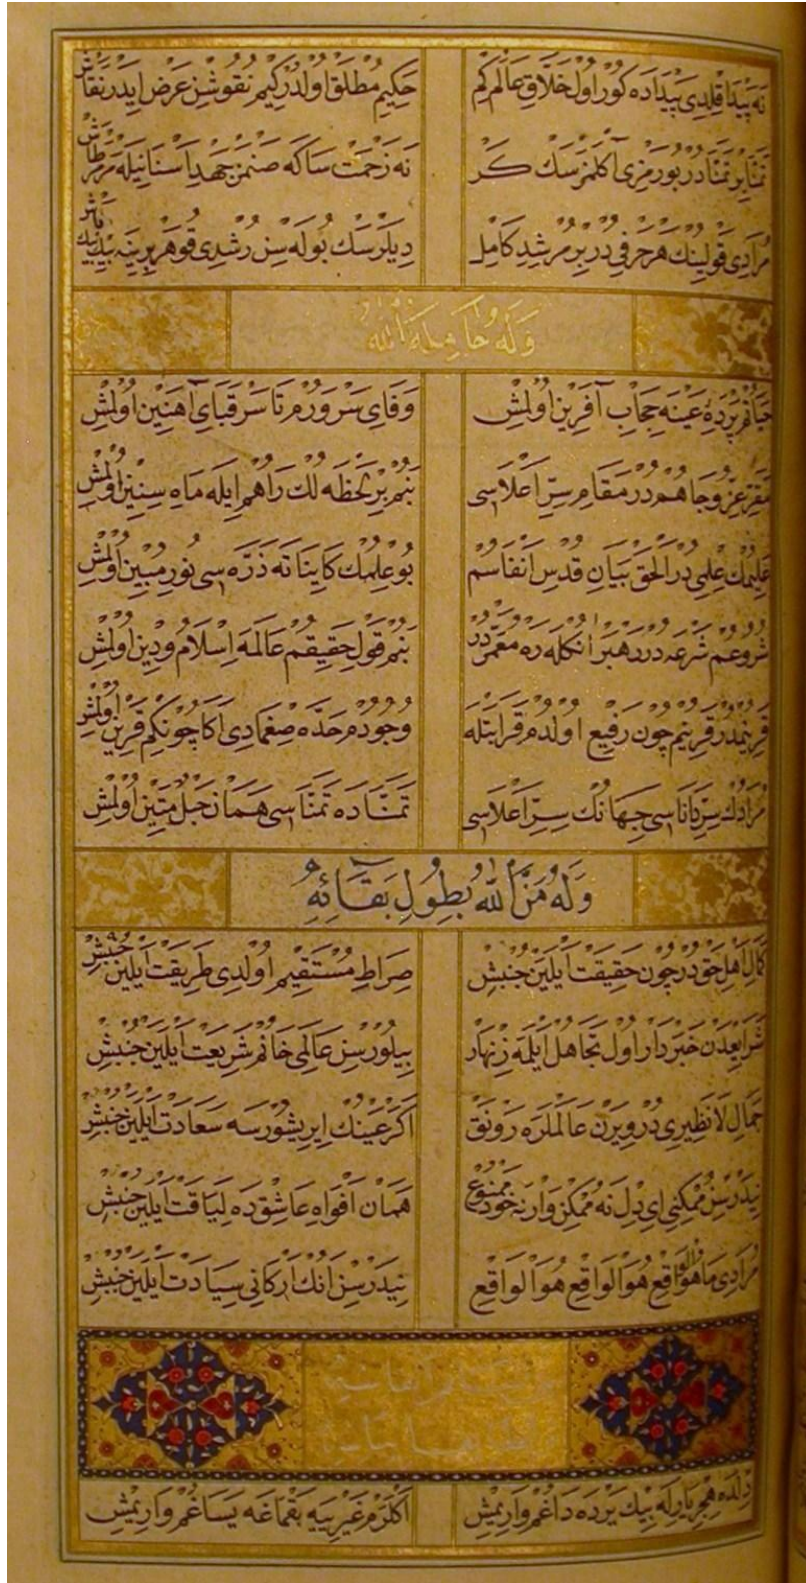 نَه پَيْدَا قِلْدِى پَيْدَادَه كُورْ اُولْ خَلَّاقِ عَالَمْ كِمْ
حَكِيمِ مُطْلَقْ اُولْدُرْ كِيمْ نُقُوشِنْ عَرْضْ اِيدَرْ نَقَّاشْ
تَمَنَّا بِرْ تَمَنَّادُرْ بُو رَمْزِى آكْلَمَزْسَكْ كَرْ
نَه زَحْمَتْ سَاكَه صَنْمَنْ جَهْدِ
مُرَادِى قَوْلِينُكْ هَرْ حَرْفِى دُرْ بِرْ مُرْشِدِ كَامِلْ
دِيلَرْسَكْ بُولَه سِنْ رُشْدِى قُو هَرْ بِرِينَه بِيكْ بِيكْ بَاشْ
وَلَهُ
حَيَاتُمْ پَرْدَۀِ عَيْنَه حِجَابِ آفَرِينْ اُولْمِشْ
وَفَاىِ سَرْوَرُمْ تَا سَرْ قَبَاىِ آهَنِينْ اُولْمِشْ
مَقَرِّ عِزُّ و جَاهُمْ دُرْ مَقَامِ سِرِّ اَعْلَاسِى
بَنُمْ بِرْ لَحْظَه لِكْ رَاهُمْ اِيلَه مَاهِ سِنِينْ اُولْمِشْ
عَلِيمُكْ عِلْمِى دُرْ اَلْحَقْ بَيَانِ قُدْسِ اَنْفَاسُمْ
بُو عِلْمُكْ كَايِنَاتَه ذَرَّه سِى نُورِ مُبِينْ اُولْمِشْ
شُرُوعُمْ شَرْعَه دُرْ رَهْبَرْ اَنُكْلَه رَه مُعَمَّرْدُرْ
بَنُمْ قَوْلِ حَقِيقُمْ عَالَمَه اِسْلَامُ و دِينْ اُولْمِشْ
قَرِينُمْدُرْ قَرِينُمْ چُونْ رَفِيعْ اُولْدُمْ قَرَابَتْلَه
وُجُودُمْ حَدَّه صِغْمَادِى اَكَا چُونْكِمْ قَرِينْ اُولْمِشْ
مُرَادُكْ سِرِّ دَانَاسِى جِهَانُكْ سِرِّ اَعْلَاسِى
تَمَنَّادَه تَمَنَّاسِى هَمَانْ حَبْلِ مَتِينْ اُولْمِشْ
وَلَهُ مَنَّ اللّٰهُ بِطُولِ بَقَائِهِ
كَمَالِ اَهْلِ حَقْ دُرْ چُونْ حَقِيقَتْ اَيْلَيَنْ جُنْبِشْ
صِرَاطِ مُسْتَقِيمْ اُولْدِى طَرِيقَتْ اَيْلَيَنْ جُنْبِشْ
شَرَايِعْدَنْ خَبَرْدَارْ اُولْ تَجَاهُلْ اَيْلَمَه زِنْهَارْ
بِيلُورْسِنْ عَالَمِى خَانُمْ شَرِيعَتْ اَيْلَيَنْ جُنْبِشْ
جَمَالِ لَا نَظِيرِى دُرْ وِيرَنْ عَالَمْلَرَه رَوْنَقْ
اَكَرْ عَيْنُكْ اِيرِيشُورْسَه سَعَادَتْ اَيْلَيَنْ جُنْبِشْ
نِيدَرْسِنْ مُمْكِنِى اِى دِلْ نَه مُمْكِنْ وَارْ نَه خُودْ مَمْنُوعْ
هَمَانْ اَفْوَاهِ عَاشِقْدَه لِيَاقَتْ اَيْلَيَنْ جُنْبِشْ
مُرَادِى مَا هُوَ الْوَاقِعْ هُوَ الْوَاقِعْ هُوَ الْوَاقِعْ
نِيدَرْسِنْ اَنُكْ اَرْكَانِى سِيَادَتْ اَيْلَيَنْ جُنْبِشْ
دِلْدَه هِجْرِ يَارِلَه بِيكْ يَرْدَه دَاغُمْ وَارِيمِشْ
اَكْلَرَمْ غَيْرِيَيه بَقْمَاغَه يَسَاغُمْ وَارِيمِشْ